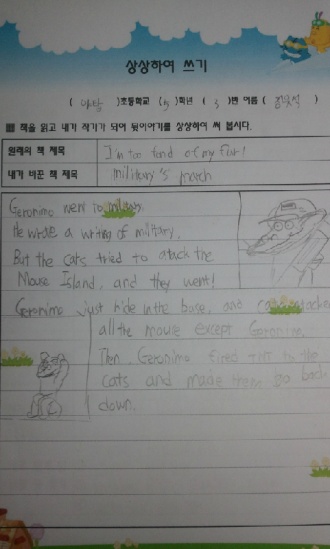 상상하여 쓰기
( )초등학교 ( 5 )학년 ( 3 )반 이름 ( )
책을 읽고 내가 작가가 되어 뒷이야기를 상상하여 써 봅시다.
원래의 책 제목 I'm too fond of my fur!
내가 바꾼 책 제목 military's march
Geronimo went to military.
He wrote a writing of military.
But the cats tried to atack the
Mouse Island, and they went!
Geronimo just hide in the base, and
all the mouse except Geronimo.
Then, Geronimo fired TNT to the
cats and made them go back
down.